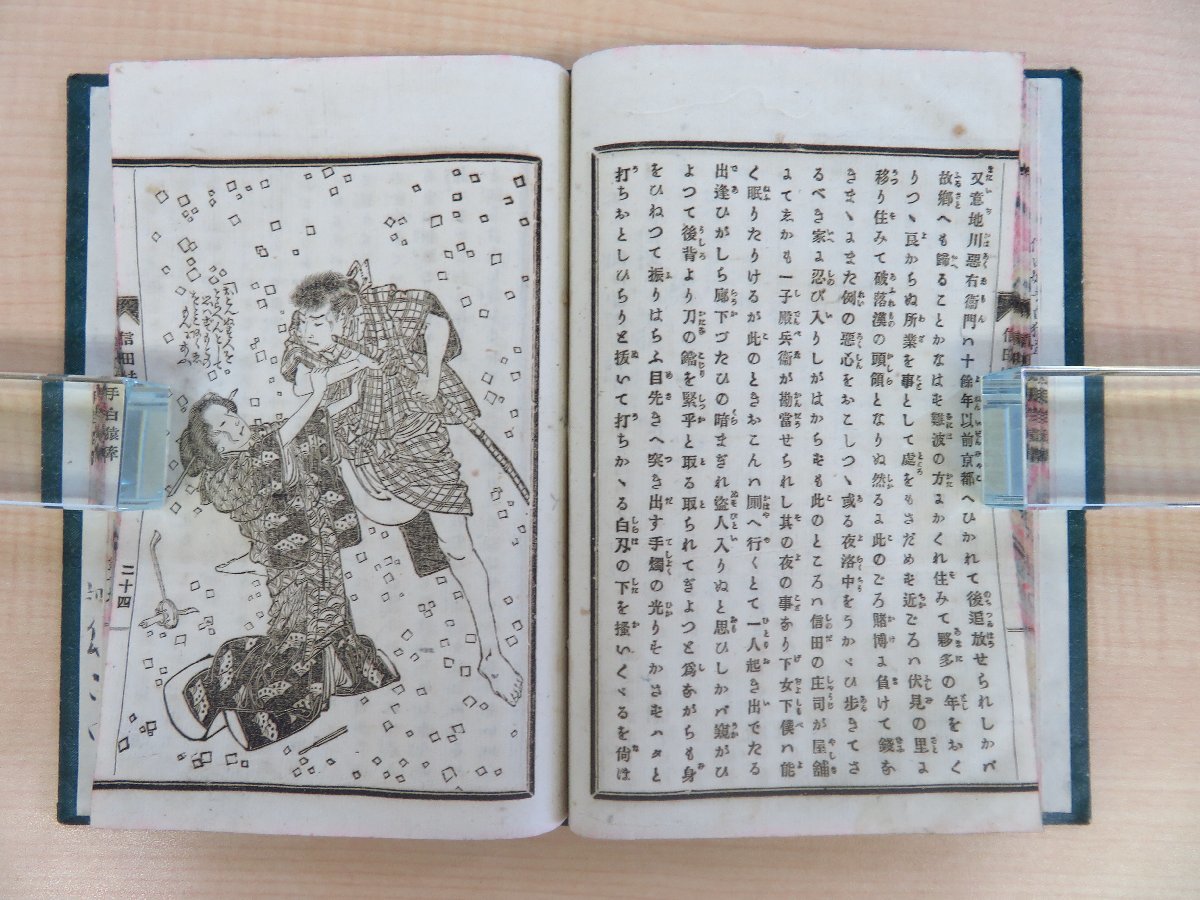 又意地川惡右衛門ハ十餘年以前京都へひかれて後追放せられしかバ
故鄕へも歸ることかなはず難波の方にかくれ住みて夥多の年をおく
りつゝ良からぬ所業を事として處をもさだめず近ごろハ伏見の里に
移り住みて破落漢の頭領となりぬ然るに此のごろ賭博に負けて錢な
きまゝにまた例の惡心をおこしつゝ或る夜洛中をうかゞひ步きてさ
るべき家に忍び入りしがはからずも此のところハ信田の庄司が屋舖
にてゑかも一子殿兵衞が勘當せられし其の夜の事なり下女下僕ハ能
く眠りたりけるが此のときおこんハ厠へ行くとて一人起き出でたる
出逢ひがしら廊下づたひの暗まぎれ盜人入りぬと思ひしかバ窺がひ
よつて後背より刀の鐺を緊乎と取る取られてぎよつと爲ながらも身
をひねつて振りはらふ目先きへ突き出す手燭の光りをかさずハタと
打ちおとしひらりと拔いて打ちかゝる白刄の下を搔いくゞるを尙は
信田
信田
手白猿牽
二十四